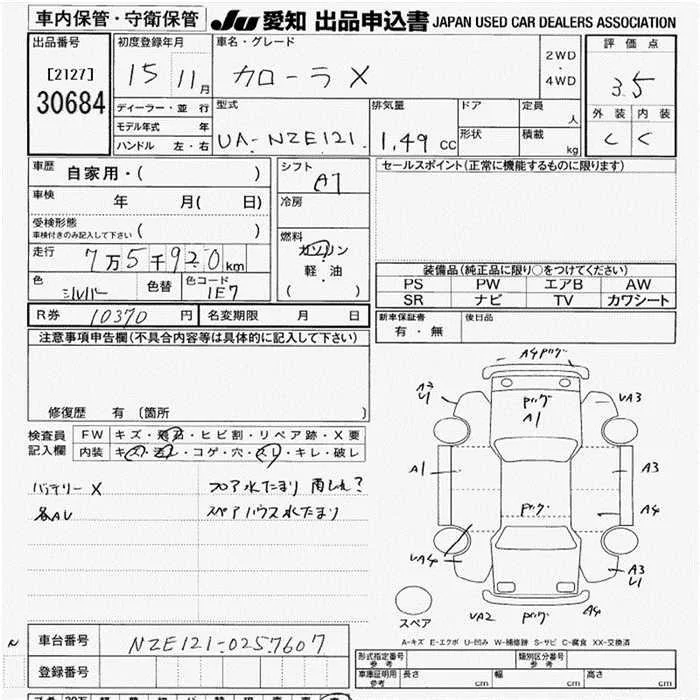 車内保管・守衛保管 JU 愛知 出品申込書 JAPAN USED CAR DEALERS ASSOCIATION
出品番号 初度登録年月 車名・グレード 2WD 評価点
[2127] 15 11月 カローラX ・ 4WD 3.5
30684 ディーラー・並行 型式 排気量 ドア 定員 人 外装 内装
モデル年式 年 UA-NZE121 1,49 CC 形状 積載 kg C C
ハンドル 左・右
車歴 自家用・( ) シフト AT セールスポイント(正常に機能するものに限ります)
車検 年 月( 日) 冷房
受検形態
車検付きのみ記入して下さい ( )
走行 7万5千920km 燃料 ガソリン
軽・油
( )
色 シルバー 色替 色コード 1E7
装備品(純正品に限り○をつけてください)
PS PW エアB AW
SR ナビ TV カワシート
R券 10370円 名変期限 月 日 新車保証書 有・無 後日品
注意事項申告欄(不具合内容等は具体的に記入して下さい)
修復歴 有 (箇所 )
検査員 FW キズ・飛石・ヒビ割・リペア跡・X要
記入欄 内装 キズ・汚レ・コゲ・穴・スレ・キレ・破レ
バッテリーX フロア水たまり 雨しれ?
各AU スペアハウス水たまり
A4 Pング
A2
U1
Pング
A1
UA3
A1
A3
Pング
A4
UA4
A3
U1
スペア
UA2
Pング
A4
A-キズ E-エクボ U-凹み W-補修跡 S-サビ C-腐食 XX-交換済
車台番号 NZE121-0257607
登録番号
形式指定番号 参考 類別区分番号 参考
車庫証明用 参考 長さ cm 幅 cm 高さ cm